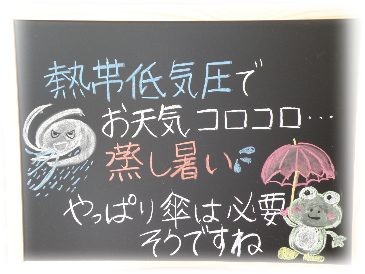 熱帯低気圧で
お天気コロコロ…
蒸し暑い
やっぱり傘は必要
そうですね